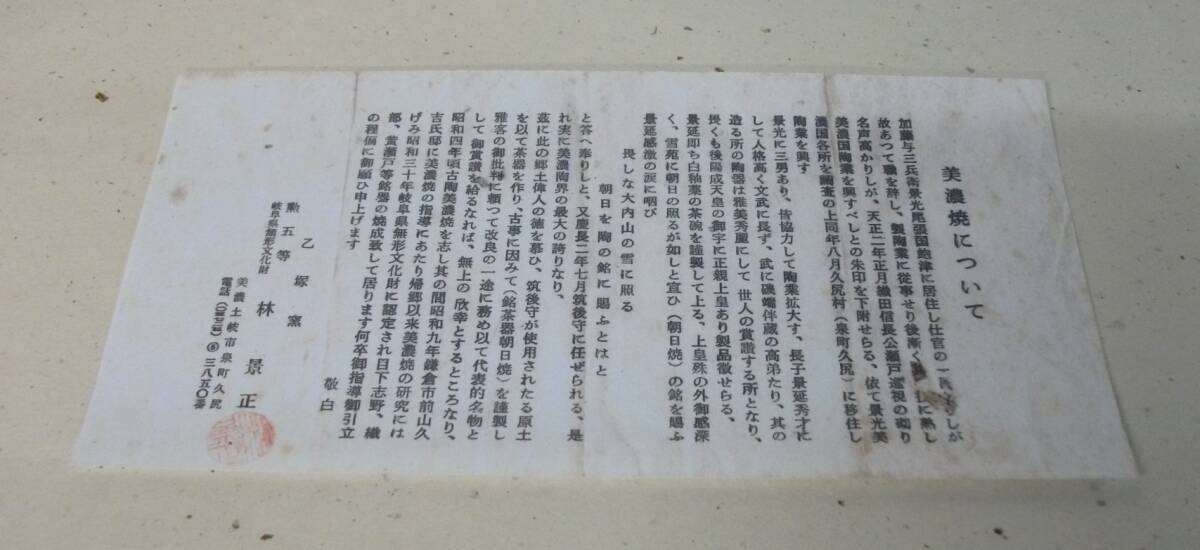 美濃焼について
加藤与三兵衛景光尾張国飽津に居住し仕官の一
故あつて職を辞し、製陶業に従事せり後漸く に熟し
名声高かりしが、天正二年正月織田信長公瀬戸巡視の砌り
美濃国陶業を興すべしとの朱印を下附せらる、依て景光美
濃国各所を調査の上同年八月久尻村(泉町久尻)に移住し
陶業を興す
景光に三男あり、皆協力して陶業拡大す、長子景延秀才に
して人格高く文武に長ず、武に磯端伴蔵の高弟たり、其の
造る所の陶器は雅美秀麗にして 世人の賞讃する所となり、
畏くも後陽成天皇の御宇に正親上皇より製品徴せらる、
景延即ち白釉薬の茶碗を謹製して上る、上皇殊の外御感深
く、雪苑に朝日の照るが如しと宣ひ(朝日焼)の銘を賜ふ
景延感激の涙に咽び
畏しな大内山の雪に照る
朝日を陶の銘に賜ふとはと
と答へ奉りしと、又慶長二年七月筑後守に任ぜられる、是
れ実に美濃陶界の最大の誇りなり、
茲に此の郷土偉人の徳を慕ひ、筑後守が使用されたる原土
を以て茶器を作り、古事に因みて(銘茶器朝日焼)を謹製し
雅客の御批判に頼つて改良の一途に務め以て代表的名物と
して御賞讃を給るなれば、無上の欣幸とするところなり、
昭和四年頃古陶美濃焼を志し其の間昭和九年鎌倉市前山久
吉氏邸に美濃焼の指導にあたり帰郷以来美濃焼の研究には
げみ昭和三十年岐阜県無形文化財に認定され目下志野、織
部、黄瀬戸等銘器の焼成致して居ります何卒御指導御引立
の程偏に御願ひ申上げます
敬白
乙塚窯
勲五等
岐阜県無形文化財
林景正
美濃土岐市泉町久尻
三八五〇番